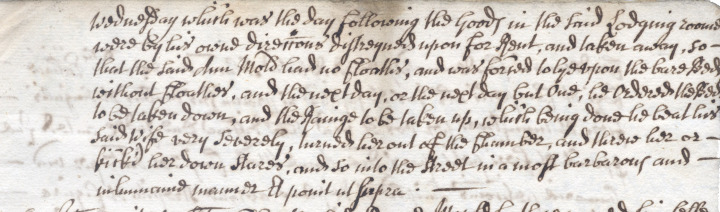 wednesday which was the day following the Goods in the said Lodging roome
were by his owne direcc͠ons distreyned upon for Rent, and taken away, so
that the said Ann Mold had no Cloaths, and was forced to lye upon the bare Bed
without Cloathes, and the next day, or the next day but One, he Ordered the Bed
to be taken down, and the to be taken up, which being done he beat his
said wife very severely, turned her out of the Chamber, and threw her or -
kick'd her down Stares, and so into the Street in a most barbarous and -
inhumaine manner Et ponit ut supra. -